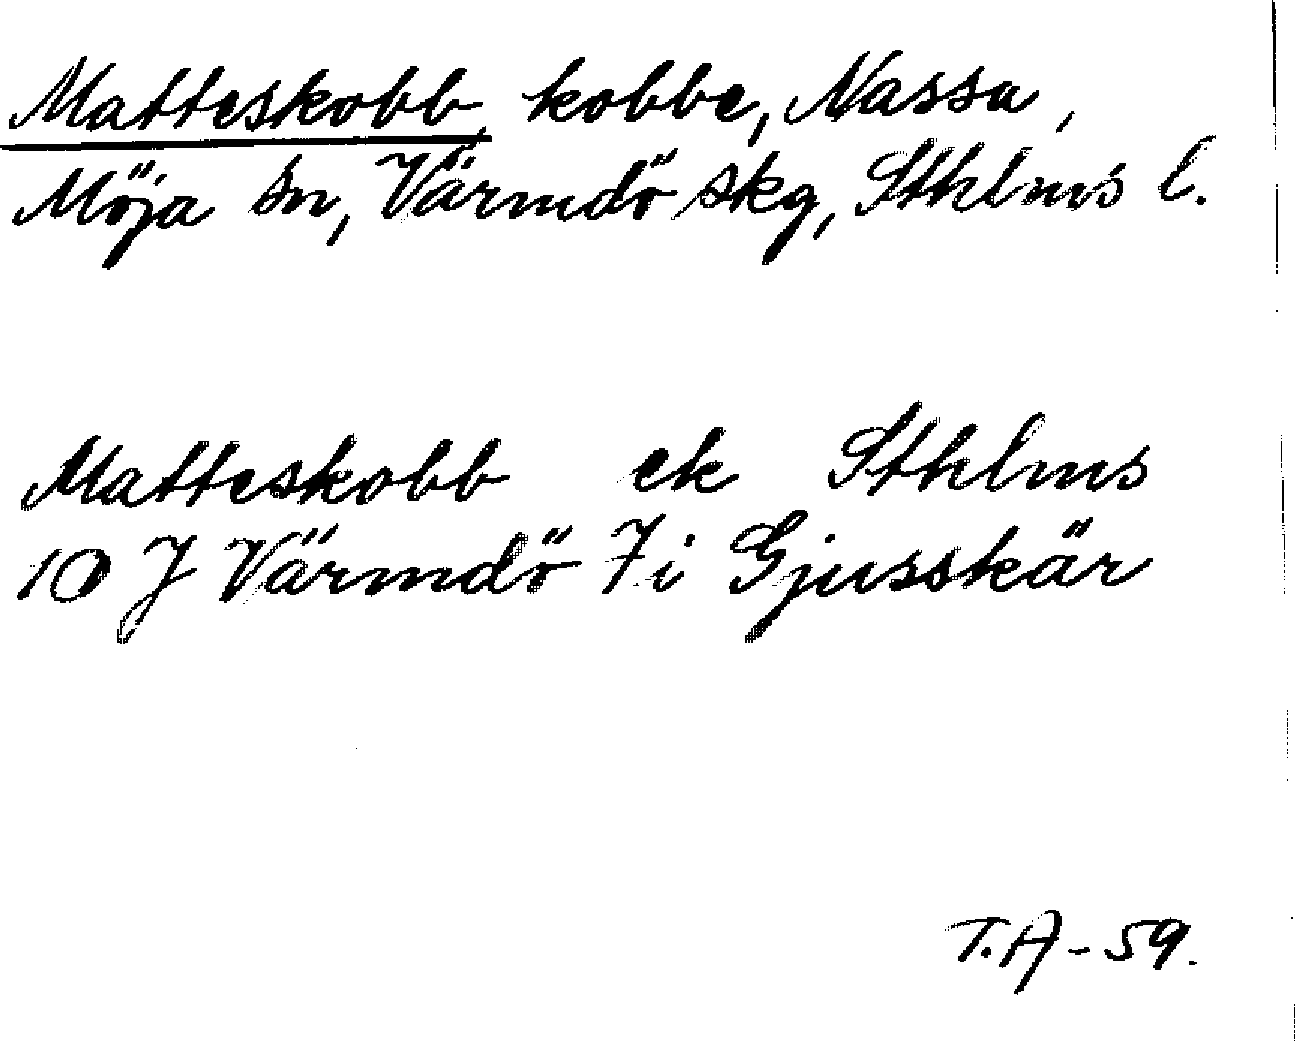 Matteskobb, kobbe, Nassa,
Möja sn, Värmdö skg, Sthlms l.
Matteskobb ek Sthlms
10 J Värmdö 7i Gjusskär
T.A-59.